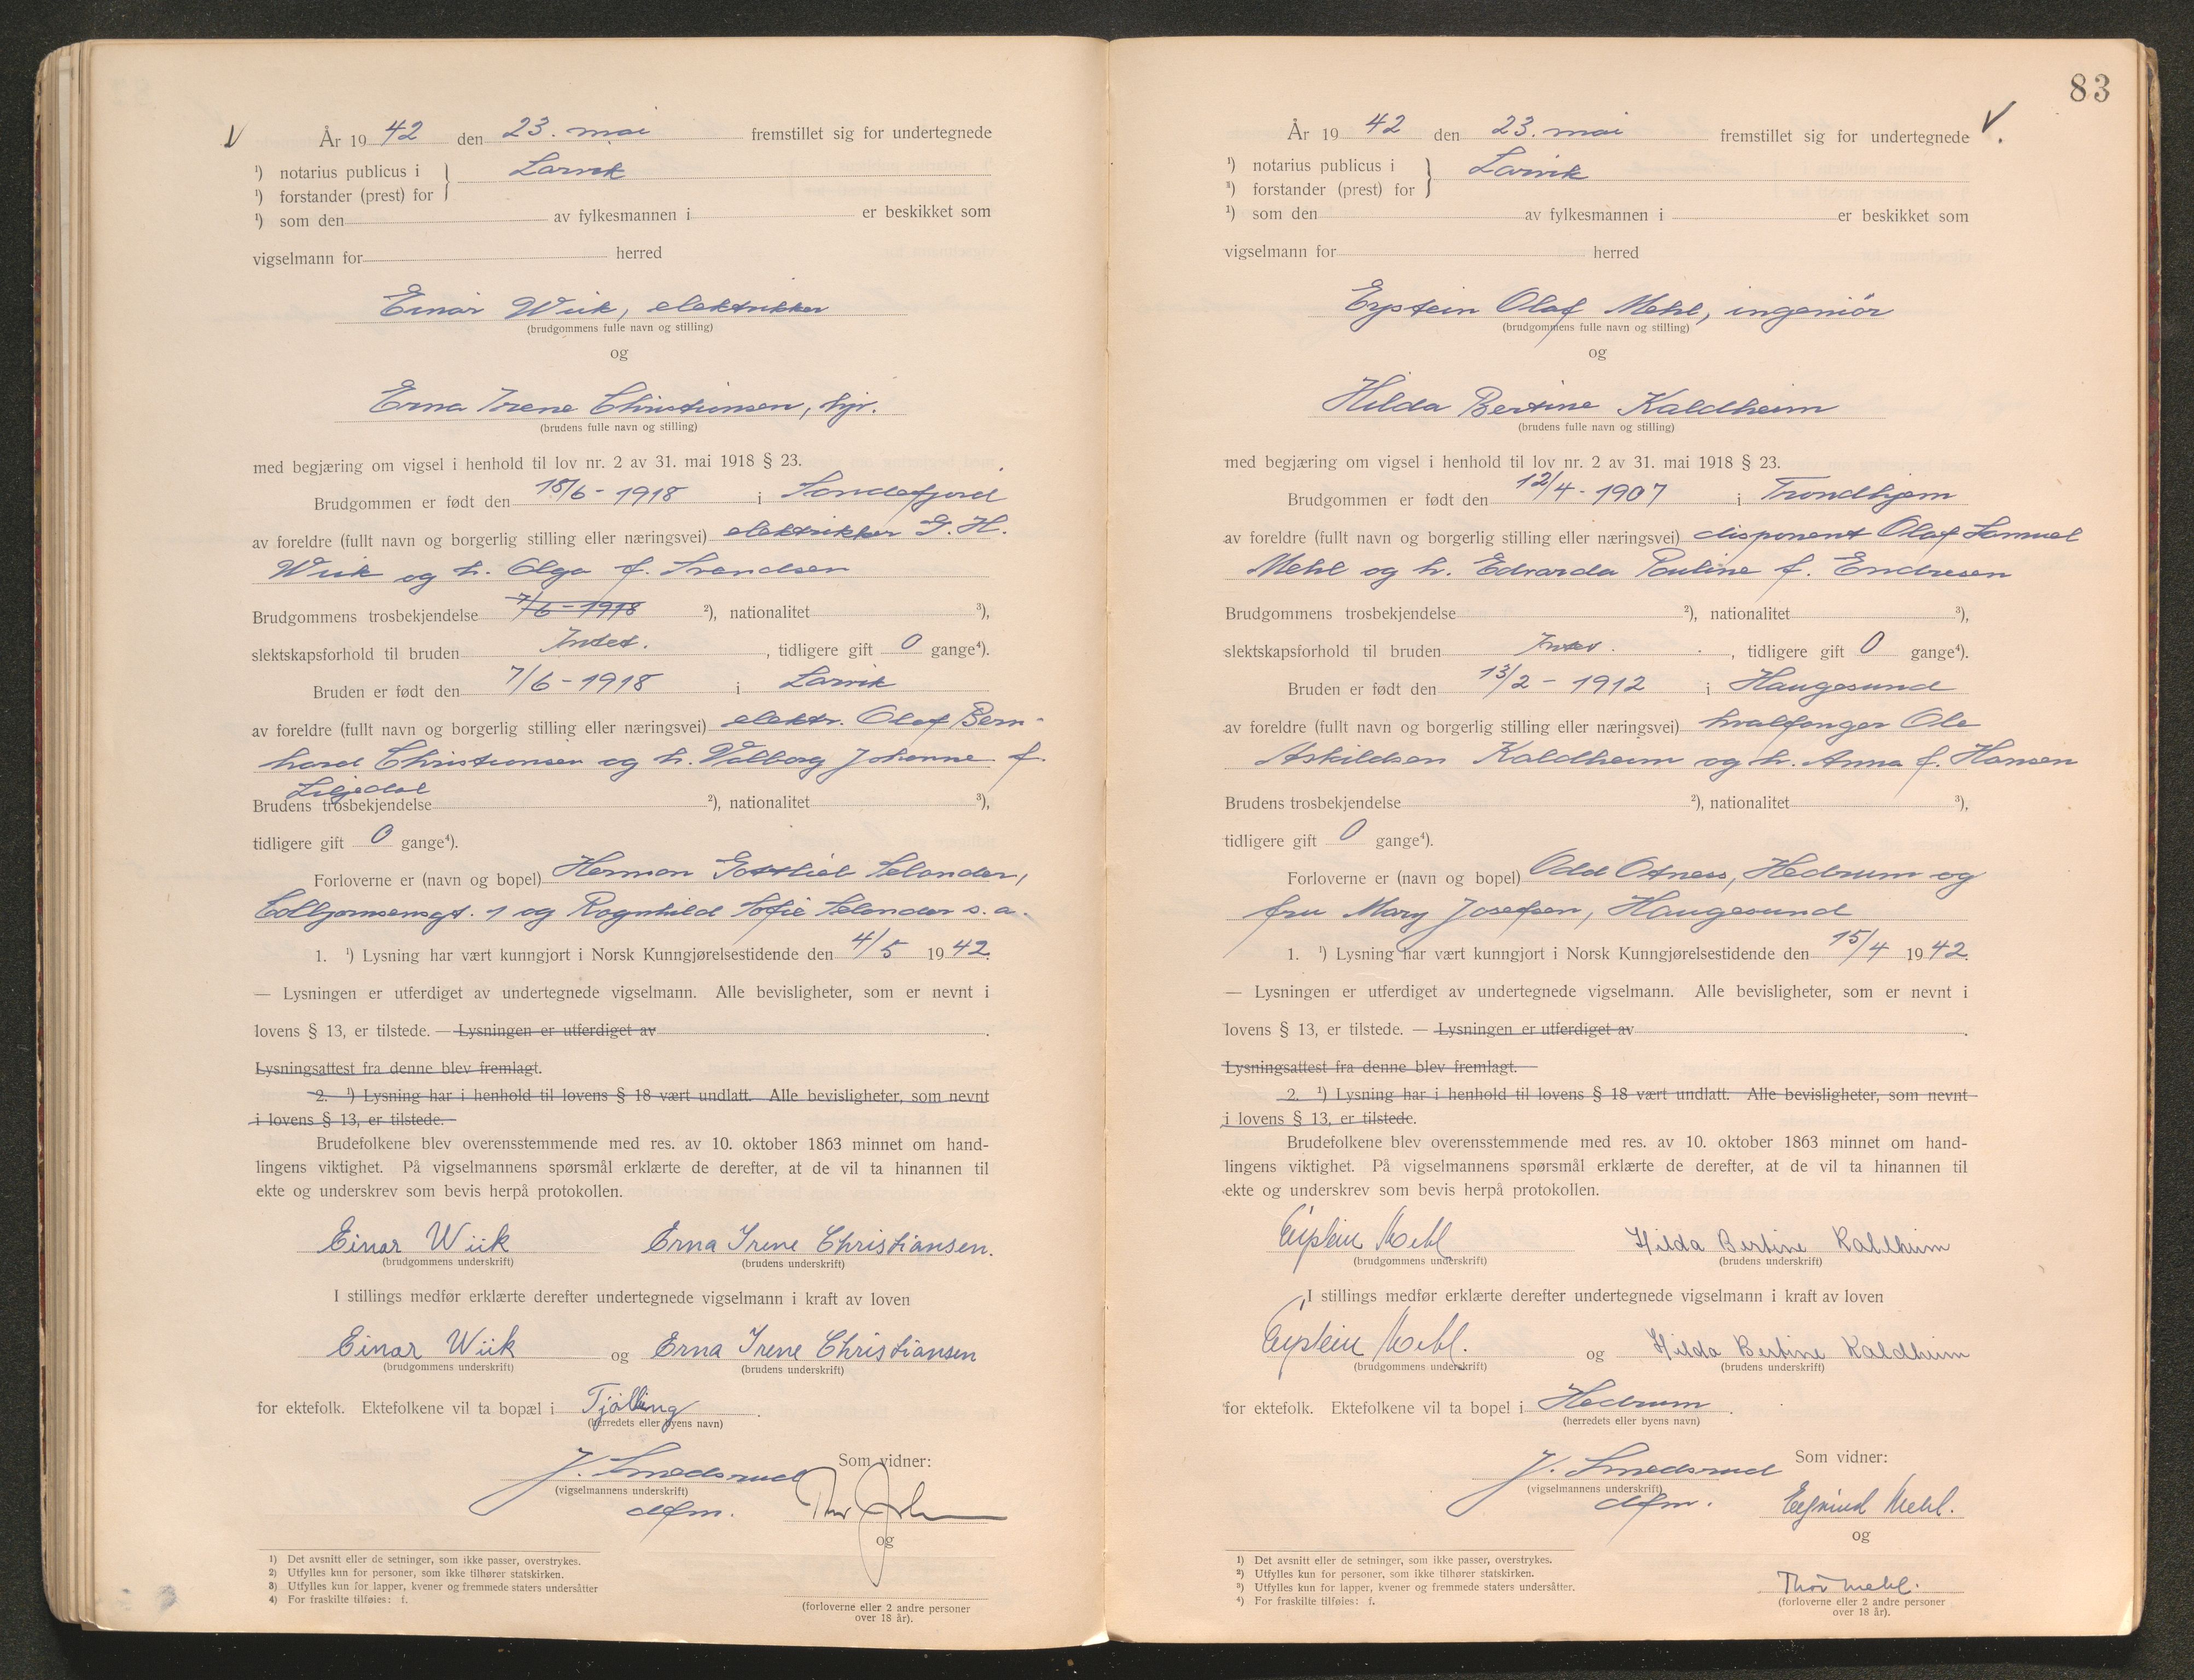 År 19 42 den 23. mai fremstillet sig for undertegnede
¹) notarius publicus i } Larvik
¹) forstander (prest) for
¹) som den av fylkesmannen i er beskikket som
vigselmann for herred
Einar Wiik, elektrikker
(brudgommens fulle navn og stilling)
og
Erna Irene Christiansen, syr.
(brudens fulle navn og stilling)
med begjæring om vigsel i henhold til lov nr. 2 av 31. mai 1918 § 23.
Brudgommen er født den 18/6 - 1918 i Sandefjord
av foreldre (fullt navn og borgerlig stilling eller næringsvei) elektrikker G. H.
Wiik og h. Olga f. Svendsen
Brudgommens trosbekjendelse 7/6 - 1918 ²), nationalitet ³),
slektskapsforhold til bruden Intet. , tidligere gift 0 gange⁴).
Bruden er født den 7/6 - 1918 i Larvik
av foreldre (fullt navn og borgerlig stilling eller næringsvei) elektr. Olaf Bern-
hard Christiansen og h. Valborg Johanne f.
Liljedal
Brudens trosbekjendelse ²), nationalitet ³),
tidligere gift 0 gange⁴).
Forloverne er (navn og bopel) Herman Gottlieb Selander,
Colbjørnsensgt. 1 og Ragnhild Sofie Selander s. a.
1. ¹) Lysning har vært kunngjort i Norsk Kunngjørelsestidende den 4/5 19 42.
— Lysningen er utferdiget av undertegnede vigselmann. Alle bevisligheter, som er nevnt i
lovens § 13, er tilstede. — Lysningen er utferdiget av .
Lysningsattest fra denne blev fremlagt.
2. ¹) Lysning har i henhold til lovens § 18 vært undlatt. Alle bevisligheter, som nevnt
i lovens § 13, er tilstede.
Brudefolkene blev overensstemmende med res. av 10. oktober 1863 minnet om hand-
lingens viktighet. På vigselmannens spørsmål erklærte de derefter, at de vil ta hinannen til
ekte og underskrev som bevis herpå protokollen.
Einar Wiik Erna Irene Christiansen.
(brudgommens underskrift) (brudens underskrift)
I stillings medfør erklærte derefter undertegnede vigselmann i kraft av loven
Einar Wiik og Erna Irene Christiansen
(brudgommens underskrift) (brudens underskrift)
for ektefolk. Ektefolkene vil ta bopæl i Tjølling .
(herredets eller byens navn)
J. Smedsrud Som vidner:
(vigselmannens underskrift)
dfm. Thor
og
¹) Det avsnitt eller de setninger, som ikke passer, overstrykes.
²) Utfylles kun for personer, som ikke tilhører statskirken.
³) Utfylles kun for lapper, kvener og fremmede staters undersåtter
⁴) For fraskilte tilføies: f.
(forloverne eller 2 andre personer
over 18 år).
83
År 19 42 den 23. mai fremstillet sig for undertegnede
¹) notarius publicus i } Larvik
¹) forstander (prest) for
¹) som den av fylkesmannen i er beskikket som
vigselmann for herred
Eystein Olaf Mehl, ingeniör
(brudgommens fulle navn og stilling)
og
Hilda Bertine Kaldheim
(brudens fulle navn og stilling)
med begjæring om vigsel i henhold til lov nr. 2 av 31. mai 1918 § 23.
Brudgommen er født den 12/4 - 1907 i Trondhjem
av foreldre (fullt navn og borgerlig stilling eller næringsvei) disponent Olaf Samuel
Mehl og h. Edvarda Pauline f. Endresen
Brudgommens trosbekjendelse ²), nationalitet ³),
slektskapsforhold til bruden Intet. , tidligere gift 0 gange⁴).
Bruden er født den 13/2 - 1912 i Haugesund
av foreldre (fullt navn og borgerlig stilling eller næringsvei) hvalfanger Ole
Askildsen Kaldheim og h. Anna f. Hansen
Brudens trosbekjendelse ²), nationalitet ³),
tidligere gift 0 gange⁴).
Forloverne er (navn og bopel) Odd Otness, Hedrum og
fru Mary Josefsen, Haugesund
1. ¹) Lysning har vært kunngjort i Norsk Kunngjørelsestidende den 15/4 19 42.
— Lysningen er utferdiget av undertegnede vigselmann. Alle bevisligheter, som er nevnt i
lovens § 13, er tilstede. — Lysningen er utferdiget av .
Lysningsattest fra denne blev fremlagt.
2. ¹) Lysning har i henhold til lovens § 18 vært undlatt. Alle bevisligheter, som nevnt
i lovens § 13, er tilstede.
Brudefolkene blev overensstemmende med res. av 10. oktober 1863 minnet om hand-
lingens viktighet. På vigselmannens spørsmål erklærte de derefter, at de vil ta hinannen til
ekte og underskrev som bevis herpå protokollen.
Eystein Mehl Hilda Bertine Kaldheim
(brudgommens underskrift) (brudens underskrift)
I stillings medfør erklærte derefter undertegnede vigselmann i kraft av loven
Eystein Mehl. og Hilda Bertine Kaldheim
(brudgommens underskrift) (brudens underskrift)
for ektefolk. Ektefolkene vil ta bopel i Hedrum .
(herredets eller byens navn)
J. Smedsrud Som vidner:
(vigselmannens underskrift)
dfm. Mehl.
og
¹) Det avsnitt eller de setninger, som ikke passer, overstrykes.
²) Utfylles kun for personer, som ikke tilhører statskirken.
³) Utfylles kun for lapper, kvener og fremmede staters undersåtter.
⁴) For fraskilte tilføies: f.
Thor Mehl.
(forloverne eller 2 andre personer
over 18 år).